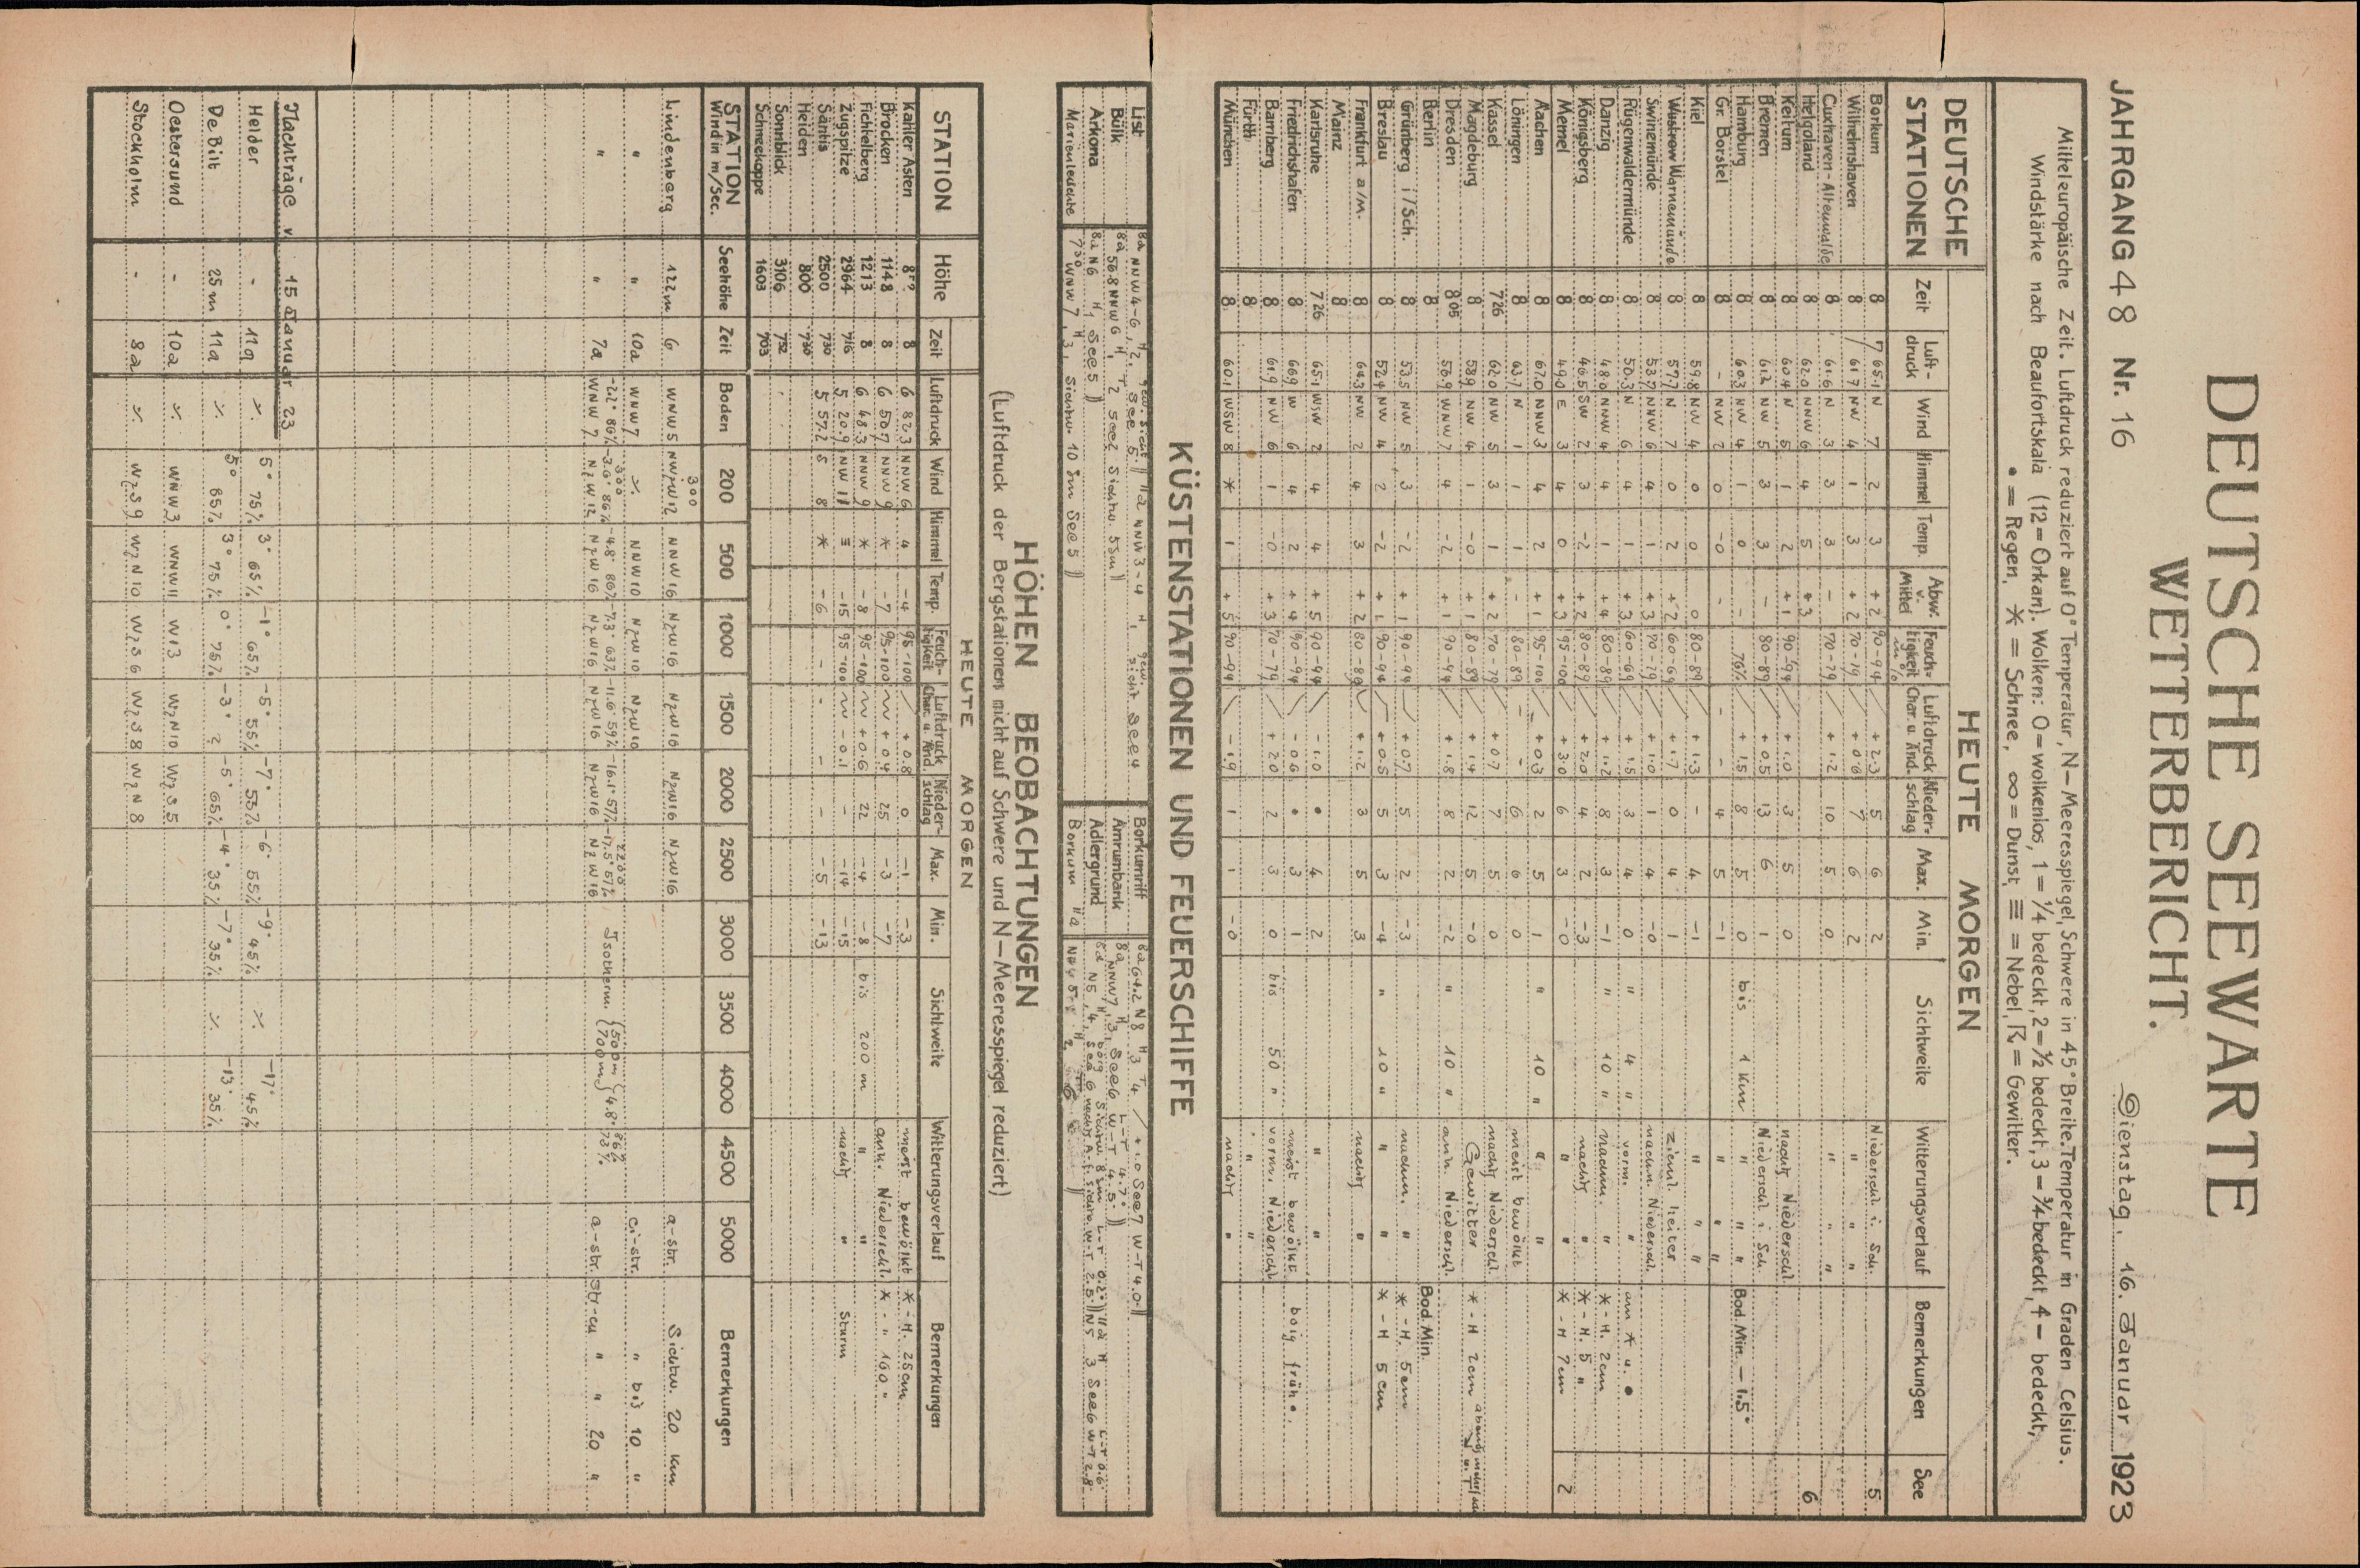 DEUTSCHE SEEWARTE
WETTERBERICHT.
JAHRGANG 48 Nr. 16 Dienstag, 16. Januar 1923
Mitteleuropäische Zeit. Luftdruck reduziert auf 0° Temperatur, N—Meeresspiegel, Schwere in 45° Breite. Temperatur in Graden Celsius.
Windstärke nach Beaufortskala (12 = Orkan). Wolken: 0 = wolkenlos, 1 = ¼ bedeckt, 2 = ½ bedeckt, 3 = ¾ bedeckt, 4 = bedeckt,
• = Regen, * = Schnee, ∞ = Dunst, ≡ = Nebel, ☈ = Gewitter.
DEUTSCHE STATIONEN HEUTE MORGEN
Zeit Luft-druck Wind Himmel Temp. Abw. v. Mittel Feuch-tigkeit in % Luftdruck Char. u. Änd. Nieder-schlag Max. Min. Sichtweite Witterungsverlauf Bemerkungen See
Borkum 8 765.1 N 7 2 3 +2 90-94 +2.3 5 6 2 Niederschl. i. Sch. 5
Wilhelmshaven 8 61.7 NW 4 1 3 +2 70-79 +0.8 7 6 2 " "
Cuxhaven-Altenwalde 8 61.6 N 3 3 3 – 70-79 +1.2 10 5 0 " "
Helgoland 8 62.0 NNW 6 4 5 +3 6
Keitum 8 60.4 N 5 1 2 +1 90-94 +1.0 3 5 0 nachts Niederschl.
Bremen 8 61.2 NW 5 3 3 – 80-89 +0.5 13 6 1 Niederschl. i. Sch.
Hamburg 8 60.3 NW 4 1 0 – 76% +1.5 8 5 0 bis 1 km " " " Bod. Min. – 1.5°
Gr. Borstel 8 – NW 2 0 –0 – – – 4 5 –1 " " "
Kiel 8 59.8 NW 4 0 0 0 80-89 +1.3 – 4 –1 " " "
Wustrow Warnemünde 8 57.7 N 7 0 2 +2 60-69 +1.7 0 4 1 zieml. heiter
Swinemünde 8 53.7 NNW 6 4 1 +3 70-79 +1.0 1 4 –0 nachm. Niederschl.
Rügenwaldermünde 8 50.3 N 6 4 1 +3 60-69 +1.5 3 4 0 " 4 " vorm. " am * u. •
Danzig 8 48.0 NNW 4 4 1 +4 80-89 +1.2 8 3 –1 " 10 " nachm. " *-H. 2cm
Königsberg 8 46.5 SW 2 3 –2 +2 80-89 +2.0 4 2 –3 nachts " *-H. 5 "
Memel 8 49.0 E 3 4 0 +3 95-100 +3.0 6 3 –0 " " *-H 7cm 2
Aachen 8 67.0 NNW 3 4 2 +1 95-100 +0.3 2 5 1 " 10 " " "
Löningen 8 63.7 N 1 1 1 – 80-89 – – 6 6 0 meist bewölkt
Kassel 7 26 62.0 NW 5 3 1 +2 70-79 +0.7 7 5 0 nachts Niederschl.
Magdeburg 8 58.9 NW 4 1 –0 +1 80-89 +1.4 12 5 –0 Gewitter *-H 2cm
Dresden 8 05 56.9 WNW 7 4 –2 +1 90-94 +1.8 8 2 –2 " 10 " anh. Niederschl.
Berlin 8 Bod. Min.
Grünberg i/Sch. 8 53.5 NW 5 3 –2 +1 90-94 +0.7 5 2 –3 nachm. " *-H. 5cm
Breslau 8 52.4 NW 4 2 –2 +1 90-94 +0.5 5 3 –4 " 10 " " " *-H 5 cm
Frankfurt a/M. 8 64.3 NW 2 4 3 +2 80-89 +1.2 3 5 3 nachts "
Mainz 8
Karlsruhe 7 26 65.1 WSW 2 4 4 +5 90-94 –1.0 • 4 2 " "
Friedrichshafen 8 66.9 W 6 4 2 +4 90-94 –0.6 • 3 1 meist bewölkt böig früh •.
Bamberg 8 61.9 NW 6 1 –0 +3 70-79 +2.0 2 3 0 bis 50 " vorm. Niederschl.
Fürth 8 " "
München 8 60.1 WSW 8 * 1 +5 90-94 –1.9 1 1 –0 nachts "
KÜSTENSTATIONEN UND FEUERSCHIFFE
List 8a NNW 4-6, H 2, gew. Sicht, See 5 || 11a NNW 3-4 H 1 gew. Sicht See 4
Bülk 8a 56.8 NNW 6 H 1 T 2 See 2 Sichtw. 5sm ||
Arkona 8a N6 H 1 See 5 ||
Marienleuchte 7 30 WNW 7, H 3, Sichtw. 10 sm See 5 ||
Borkumriff 8a 64.2 N 8 H 3 T 4 / +1.0 See 7 W-T 4.0 ||
Amrumbank 8a NNW 7 H 3, See 6 L-T 4.7° W-T 4.5° ||
Adlergrund 8a N5, 4, böig Sichtw. 8 sm L-T 0.2° || 11a H L-T 0.6°
Borkum 11a
HÖHEN BEOBACHTUNGEN
(Luftdruck der Bergstationen nicht auf Schwere und N—Meeresspiegel reduziert)
STATION Höhe HEUTE MORGEN
Zeit Luftdruck Wind Himmel Temp. Feuch-tigkeit Luftdruck Char. u. Änd. Nieder-schlag Max. Min. Sichtweite Witterungsverlauf Bemerkungen
Kahler Asten 8 6 82.3 NNW 6 4 –4 95-100 +0.8 0 –1 –3 meist bewölkt *-H. 25cm
Brocken 1148 8 6 50.7 NNW 9 * –7 95-100 +0.4 25 –3 –7 anh. Niederschl. *-" 160 "
Fichtelberg 1213 8 6 48.3 NNW 9 * –8 95-100 +0.6 22 –4 –8 bis 200 m " "
Zugspitze 2964 7 16 5 20.9 NW 11 ≡ –15 95-100 –0.1 – –14 –15 nachts " Sturm
Säntis 2500 7 30 5 57.2 S 8 * –6 – – – – –5 –13
Heiden 800 7 30
Sonnblick 3106 7 52
Schneekoppe 1603 7 03
STATION Wind in m/Sec. Seehöhe Zeit Boden 200 500 1000 1500 2000 2500 3000 3500 4000 4500 5000 Bemerkungen
Lindenberg 122m 6 WNW 5 300 NWzW 12 NNW 16 NzW 16 NzW 16 NzW 16 NzW 16 a-str. Sichtw. 20 km
" " 10a WNW 7 ⁒ NNW 10 NzW 10 NzW 10 ci-str. " bis 10 "
" " 7a –2.2° 86% –3.0° 86% –4.8° 86% –7.3° 63% –11.6° 59% –16.1° 57% –17.5° 57% Isotherm. {500m 700m} {4.8° 86% 73%
WNW 7 NzW 12 NzW 16 NzW 16 NzW 16 NzW 16 NzW 16 a-str. str-cu " " 20 "
Nachträge v. 15 Januar 23
Helder - 11a ⁒ 5° 75% 3° 65% –1° 65% –5° 55% –7° 53% –6° 55% –9° 45% ⁒ –17° 45%
De Bilt 25m 11a ⁒ 5° 85% 3° 75% 0° 75% –3° ? –5° 65% –4° 35% –7° 35% ⁒ –13° 35%
Oestersund - 10a ⁒ WNW 3 WNW 11 W 13 WzN 10 WzS 5
Stockholm - 8a ⁒ WzS 9 WzN 10 WzS 6 WzS 8 WzN 8